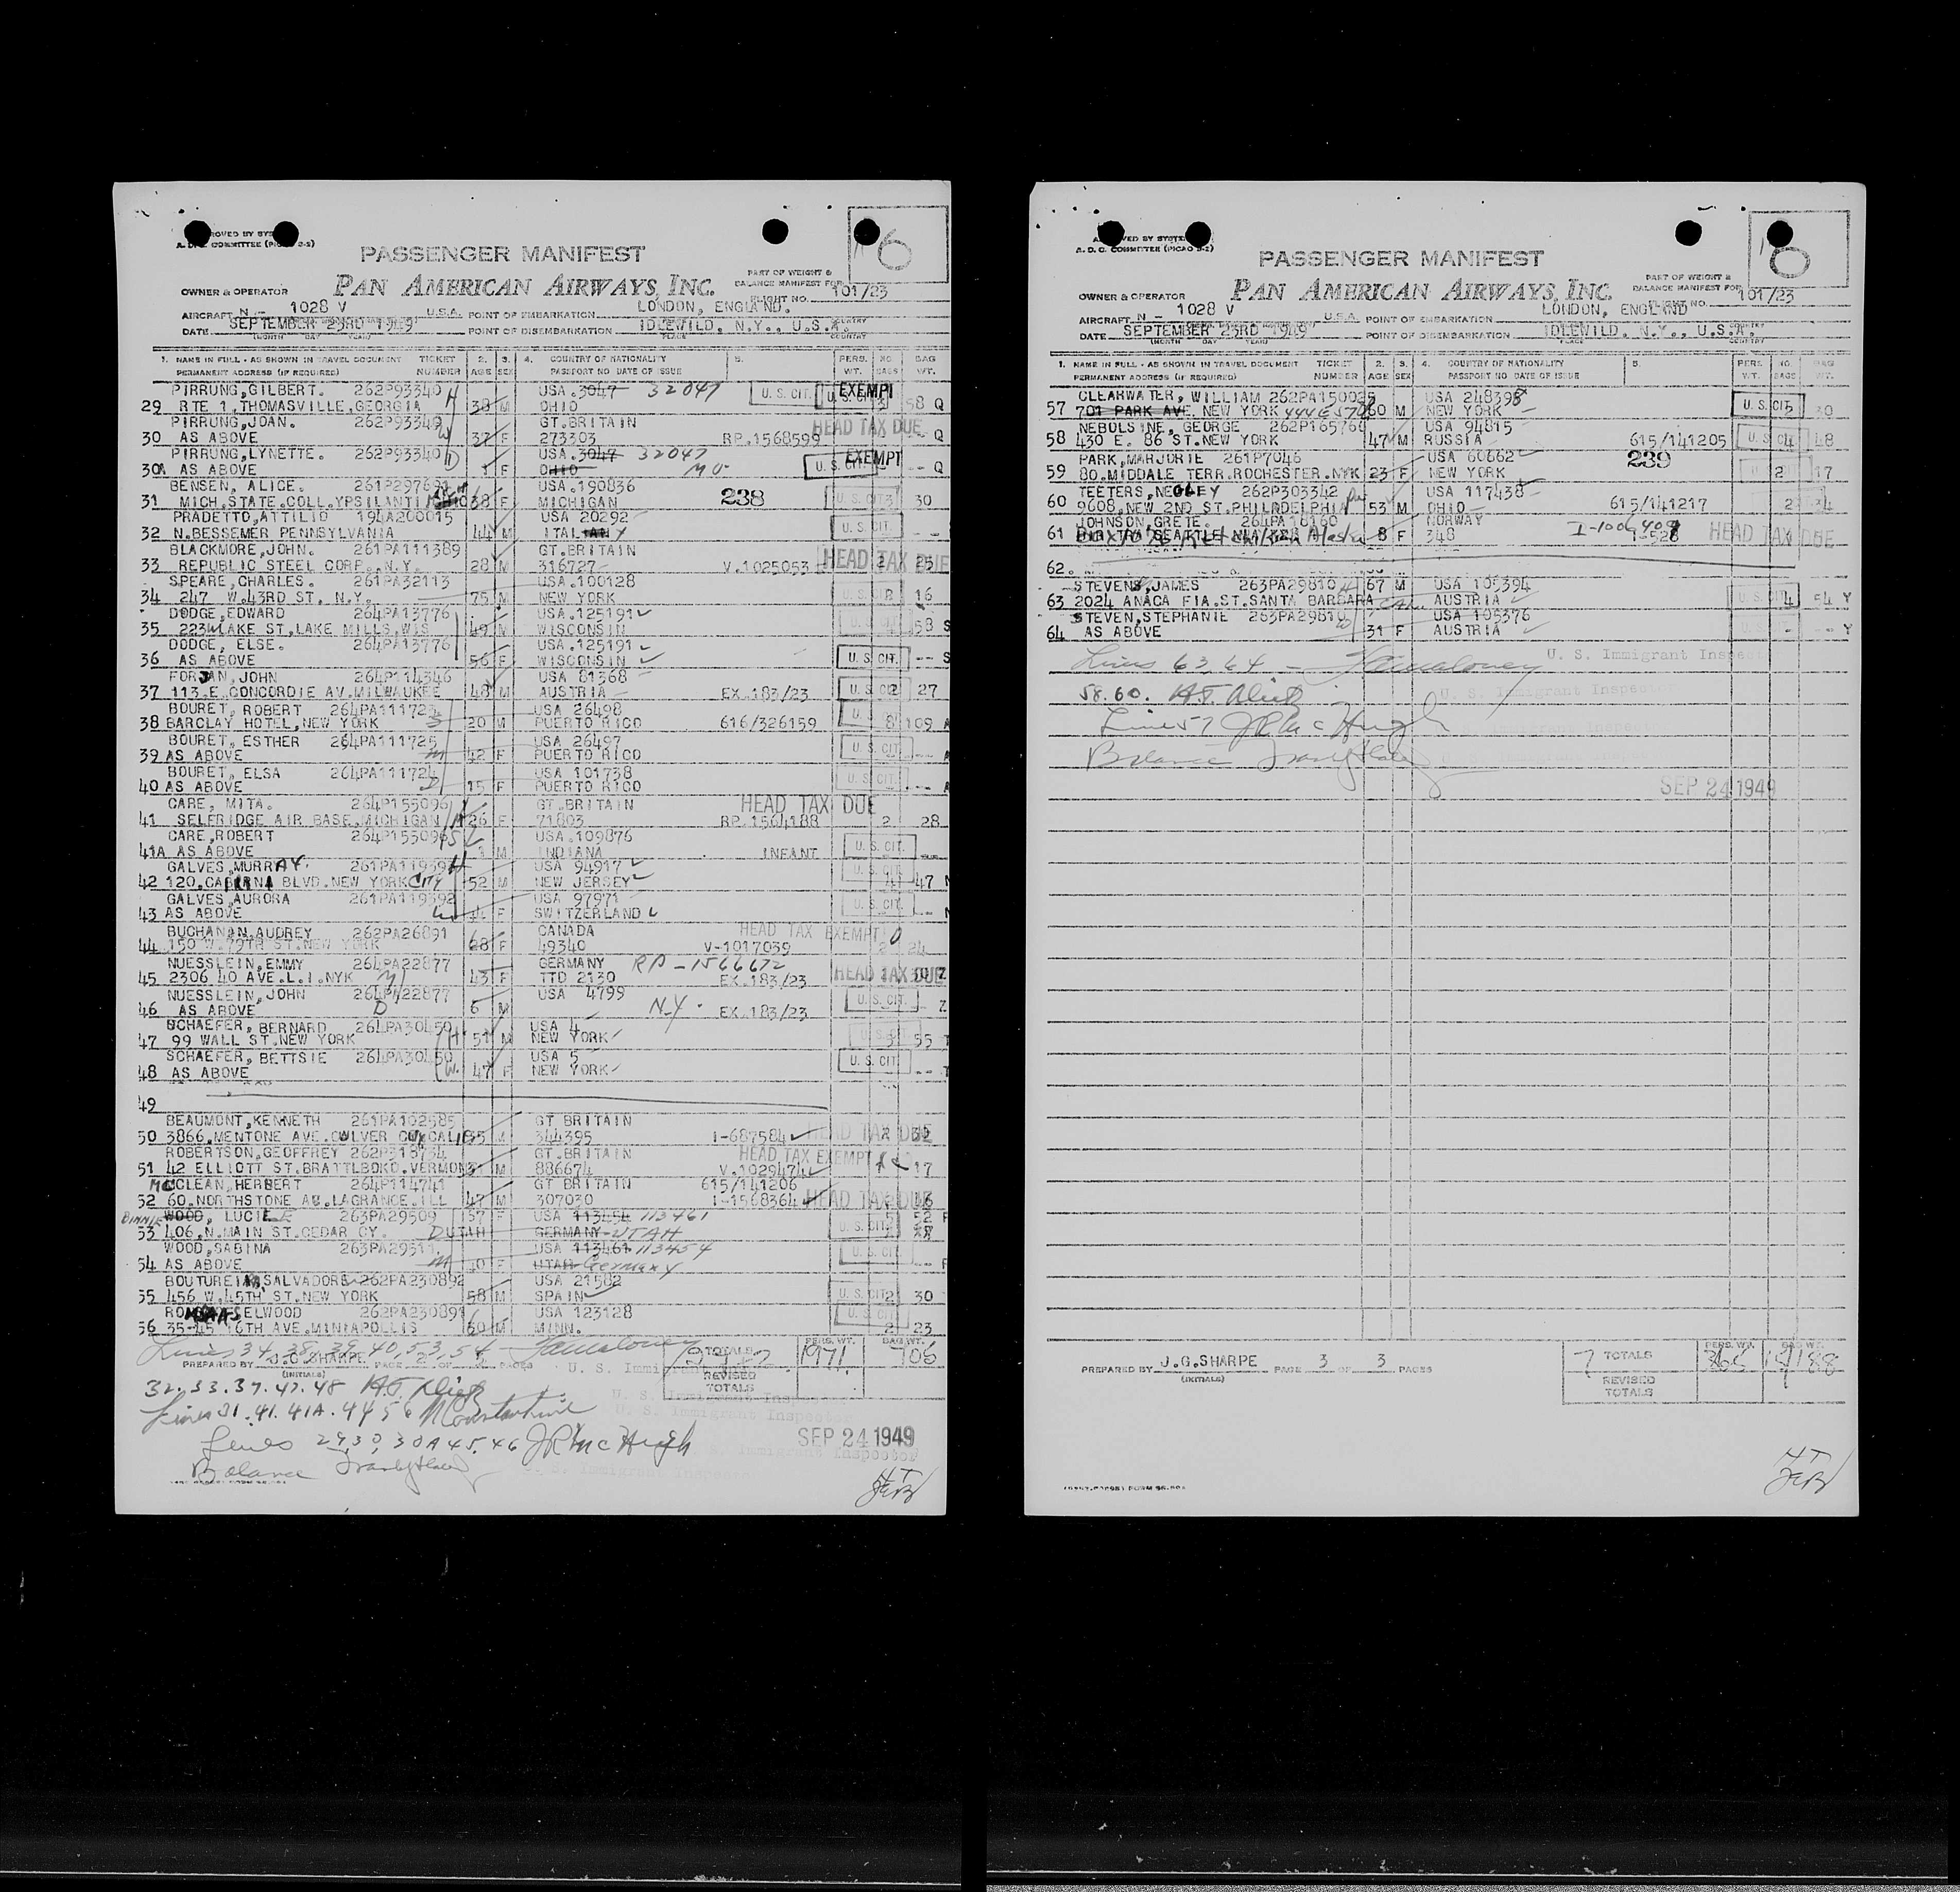 APPROVED BY SYSTEM
A. D. C. COMMITTEE (PICAO 2-2)
PASSENGER MANIFEST
PAN AMERICAN AIRWAYS, INC.
PART OF WEIGHT &
BALANCE MANIFEST FOR
FLIGHT NO. 101/23
OWNER & OPERATOR
AIRCRAFT N - 1028 V U.S.A. POINT OF EMBARKATION LONDON, ENGLAND.
DATE SEPTEMBER 23RD 1949 POINT OF DISEMBARKATION IDLEWILD, N.Y., U.S.A.
(MONTH DAY YEAR) PLACE COUNTRY
1. NAME IN FULL - AS SHOWN IN TRAVEL DOCUMENT TICKET 2. 3. 4. COUNTRY OF NATIONALITY 5. PERS. NO. BAG
PERMANENT ADDRESS (IF REQUIRED) NUMBER AGE SEX PASSPORT NO DATE OF ISSUE WT. BAGS WT.
PIRRUNG, GILBERT. 262P93340 H USA. 3047 32047 U. S. CIT. EXEMPT
29 RTE 1, THOMASVILLE, GEORGIA 38 M OHIO 58 Q
PIRRUNG, JOAN. 262P93340 W GT. BRITAIN HEAD TAX DUE
30 AS ABOVE 37 F 273303 RP. 1568599 Q
PIRRUNG, LYNETTE. 262P93340 D USA. 3047 32047 EXEMPT
30A AS ABOVE F OHIO U. S. CIT. -- Q
BENSEN, ALICE. 261P297691 USA. 190836 238
31 MICH. STATE. COLL. YPSILANTI 38 F MICHIGAN U. S. CIT. 30
PRADETTO, ATTILIO 194A200015 USA 20292
32 N. BESSEMER PENNSYLVANIA 44 M ITALY U. S. CIT. --
BLACKMORE, JOHN. 261PA111389 GT. BRITAIN HEAD TAX DUE
33 REPUBLIC STEEL CORP., N.Y. 28 M 316727 V. 1025053 2 25
SPEARE, CHARLES. 261PA32113 USA. 100128
34 247 W. 43RD ST. N.Y. 75 M NEW YORK U. S. CIT. 16
DODGE, EDWARD 264PA13776 USA. 125191
35 223 W LAKE ST, LAKE MILLS, WIS 49 M WISCONSIN 58 S
DODGE, ELSE. 264PA13776 USA. 125191
36 AS ABOVE 56 F WISCONSIN U. S. CIT. -- S
FORJAN, JOHN 264P114346 USA 81368
37 113. E. CONCORDIE AV. MILWAUKEE 48 M AUSTRIA EX. 183/23 U. S. CIT. 2 27
BOURET, ROBERT 264PA111723 USA 26498
38 BARCLAY HOTEL, NEW YORK 20 M PUERTO RICO 616/326159 8 109 A
BOURET, ESTHER 264PA111725 USA 26497
39 AS ABOVE 42 F PUERTO RICO U. S. CIT. -- A
BOURET, ELSA 264PA111724 USA 101738
40 AS ABOVE 15 F PUERTO RICO U. S. CIT. -- A
CARE, MITA. 264P155096 GT. BRITAIN HEAD TAX DUE
41 SELFRIDGE AIR BASE, MICHIGAN 26 F 71803 RP. 1564188 2 28
CARE, ROBERT 264P155096 USA. 109876
41A AS ABOVE M INDIANA INFANT U. S. CIT. --
GALVES, MURRAY. 261PA119591 H USA 94917
42 120. CABRINI BLVD. NEW YORK CITY 52 M NEW JERSEY U. S. CIT. 4 47 N
GALVES, AURORA 261PA119592 USA 97971
43 AS ABOVE F SWITZERLAND U. S. CIT. -- N
BUCHANAN, AUDREY 262PA26891 CANADA HEAD TAX EXEMPT
44 150 W. 79TH ST. NEW YORK 28 F 49340 V-1017039 2 24
NUESSLEIN, EMMY 264PA22877 GERMANY RP - 1566672
45 2306 40 AVE. L. I. NYK 43 F TTD 2130 EX. 183/23 HEAD TAX DUE Z
NUESSLEIN, JOHN 264PA22877 USA 4799
46 AS ABOVE D 6 M N.Y. EX. 183/23 U. S. CIT. -- Z
SCHAEFER, BERNARD 264PA30450 USA 4
47 99 WALL ST. NEW YORK H 51 M NEW YORK 55 T
SCHAEFER, BETTSIE 264PA30450 USA 5
48 AS ABOVE W. 47 F NEW YORK U. S. CIT. -- T
49
BEAUMONT, KENNETH 261PA102585 GT BRITAIN
50 3866. MENTONE AVE. CULVER CY. CALIF 35 M 344395 I-687584 HEAD TAX DUE
ROBERTSON, GEOFFREY 262P318734 GT. BRITAIN HEAD TAX EXEMPT
51 42 ELLIOTT ST. BRATTLBORO. VERMONT M 886674 V. 1029474 17
MCCLEAN, HERBERT 264P114741 GT BRITAIN 615/141206
52 60. NORTHSTONE AB. LAGRANGE. ILL 47 M 307030 I-1568364 HEAD TAX DUE
BINNIE WOOD, LUCILE 263PA29509 57 F USA 113454 113461
53 406, N. MAIN ST. CEDAR CY. UTAH GERMANY-UTAH
WOOD, SABINA 263PA29511 USA 113461 113454
54 AS ABOVE 40 F UTAH Germany
BOUTUREIRA, SALVADORE 262PA230892 USA 21582
55 456 W. 45TH ST. NEW YORK 58 M SPAIN U. S. CIT. 2 30
ELWOOD 262PA230891 USA 123128
56 35-45 16TH AVE. MINIAPOLLIS 60 M MINN. 2 23
Lines 34, 38, 39, 40, 53, 54
PREPARED BY J.G. SHARPE PAGE 2 OF 3 PAGES
(INITIALS)
TOTALS PERS. WT. 1971 BAG WT. 706
REVISED TOTALS
U. S. Immigrant Inspector
32. 33. 37. 47. 48
Lines 31. 41. 41A. 44 56
Lines 29, 30, 30A 45. 46 JR McHugh
Balance
SEP 24 1949
APPROVED BY SYSTEM
A. D. C. COMMITTEE (PICAO 2-2)
PASSENGER MANIFEST
PAN AMERICAN AIRWAYS, INC.
PART OF WEIGHT &
BALANCE MANIFEST FOR
FLIGHT NO. 101/23
OWNER & OPERATOR
AIRCRAFT N - 1028 V U.S.A. POINT OF EMBARKATION LONDON, ENGLAND
DATE SEPTEMBER 23RD 1949 POINT OF DISEMBARKATION IDLEWILD, N.Y., U.S.A.
(MONTH DAY YEAR) PLACE COUNTRY
1. NAME IN FULL - AS SHOWN IN TRAVEL DOCUMENT TICKET 2. 3. 4. COUNTRY OF NATIONALITY 5. PERS. NO. BAG
PERMANENT ADDRESS (IF REQUIRED) NUMBER AGE SEX PASSPORT NO DATE OF ISSUE WT. BAGS WT.
CLEARWATER, WILLIAM 262PA150025 USA 248398
57 701 PARK AVE. NEW YORK 444 E 57 60 M NEW YORK U. S. CIT. 5 30
NEBOLSINE, GEORGE 262P165766 USA 94815
58 430 E. 86 ST. NEW YORK 47 M RUSSIA 615/141205 4 48
PARK, MARJORIE 261P7046 USA 60662 239
59 80. MIDDALE TERR. ROCHESTER. NYK 23 F NEW YORK 2 17
TEETERS, NEGLEY 262P303342 USA 117438
60 9608, NEW 2ND ST. PHILADELPHIA 53 M OHIO 615/141217 2 34
JOHNSON, GRETE. 264PA18160 NORWAY
61 Alaska 8 F 348 HEAD TAX DUE
62.
STEVENS, JAMES 263PA29810 67 M USA 105394
63 2024 ANACA FIA. ST. SANTA BARBARA AUSTRIA 4 54 Y
STEVEN, STEPHANIE 263PA29810 USA 105376
64 AS ABOVE 31 F AUSTRIA - -- Y
Lines 63, 64 -
U. S. Immigrant Inspector
58. 60.
U. S. Immigrant Inspector
Line 57 JR McHugh
Balance
SEP 24 1949
PREPARED BY J.G. SHARPE PAGE 3 OF 3 PAGES
(INITIALS)
7 TOTALS PERS. WT. BAG WT. 188
REVISED TOTALS